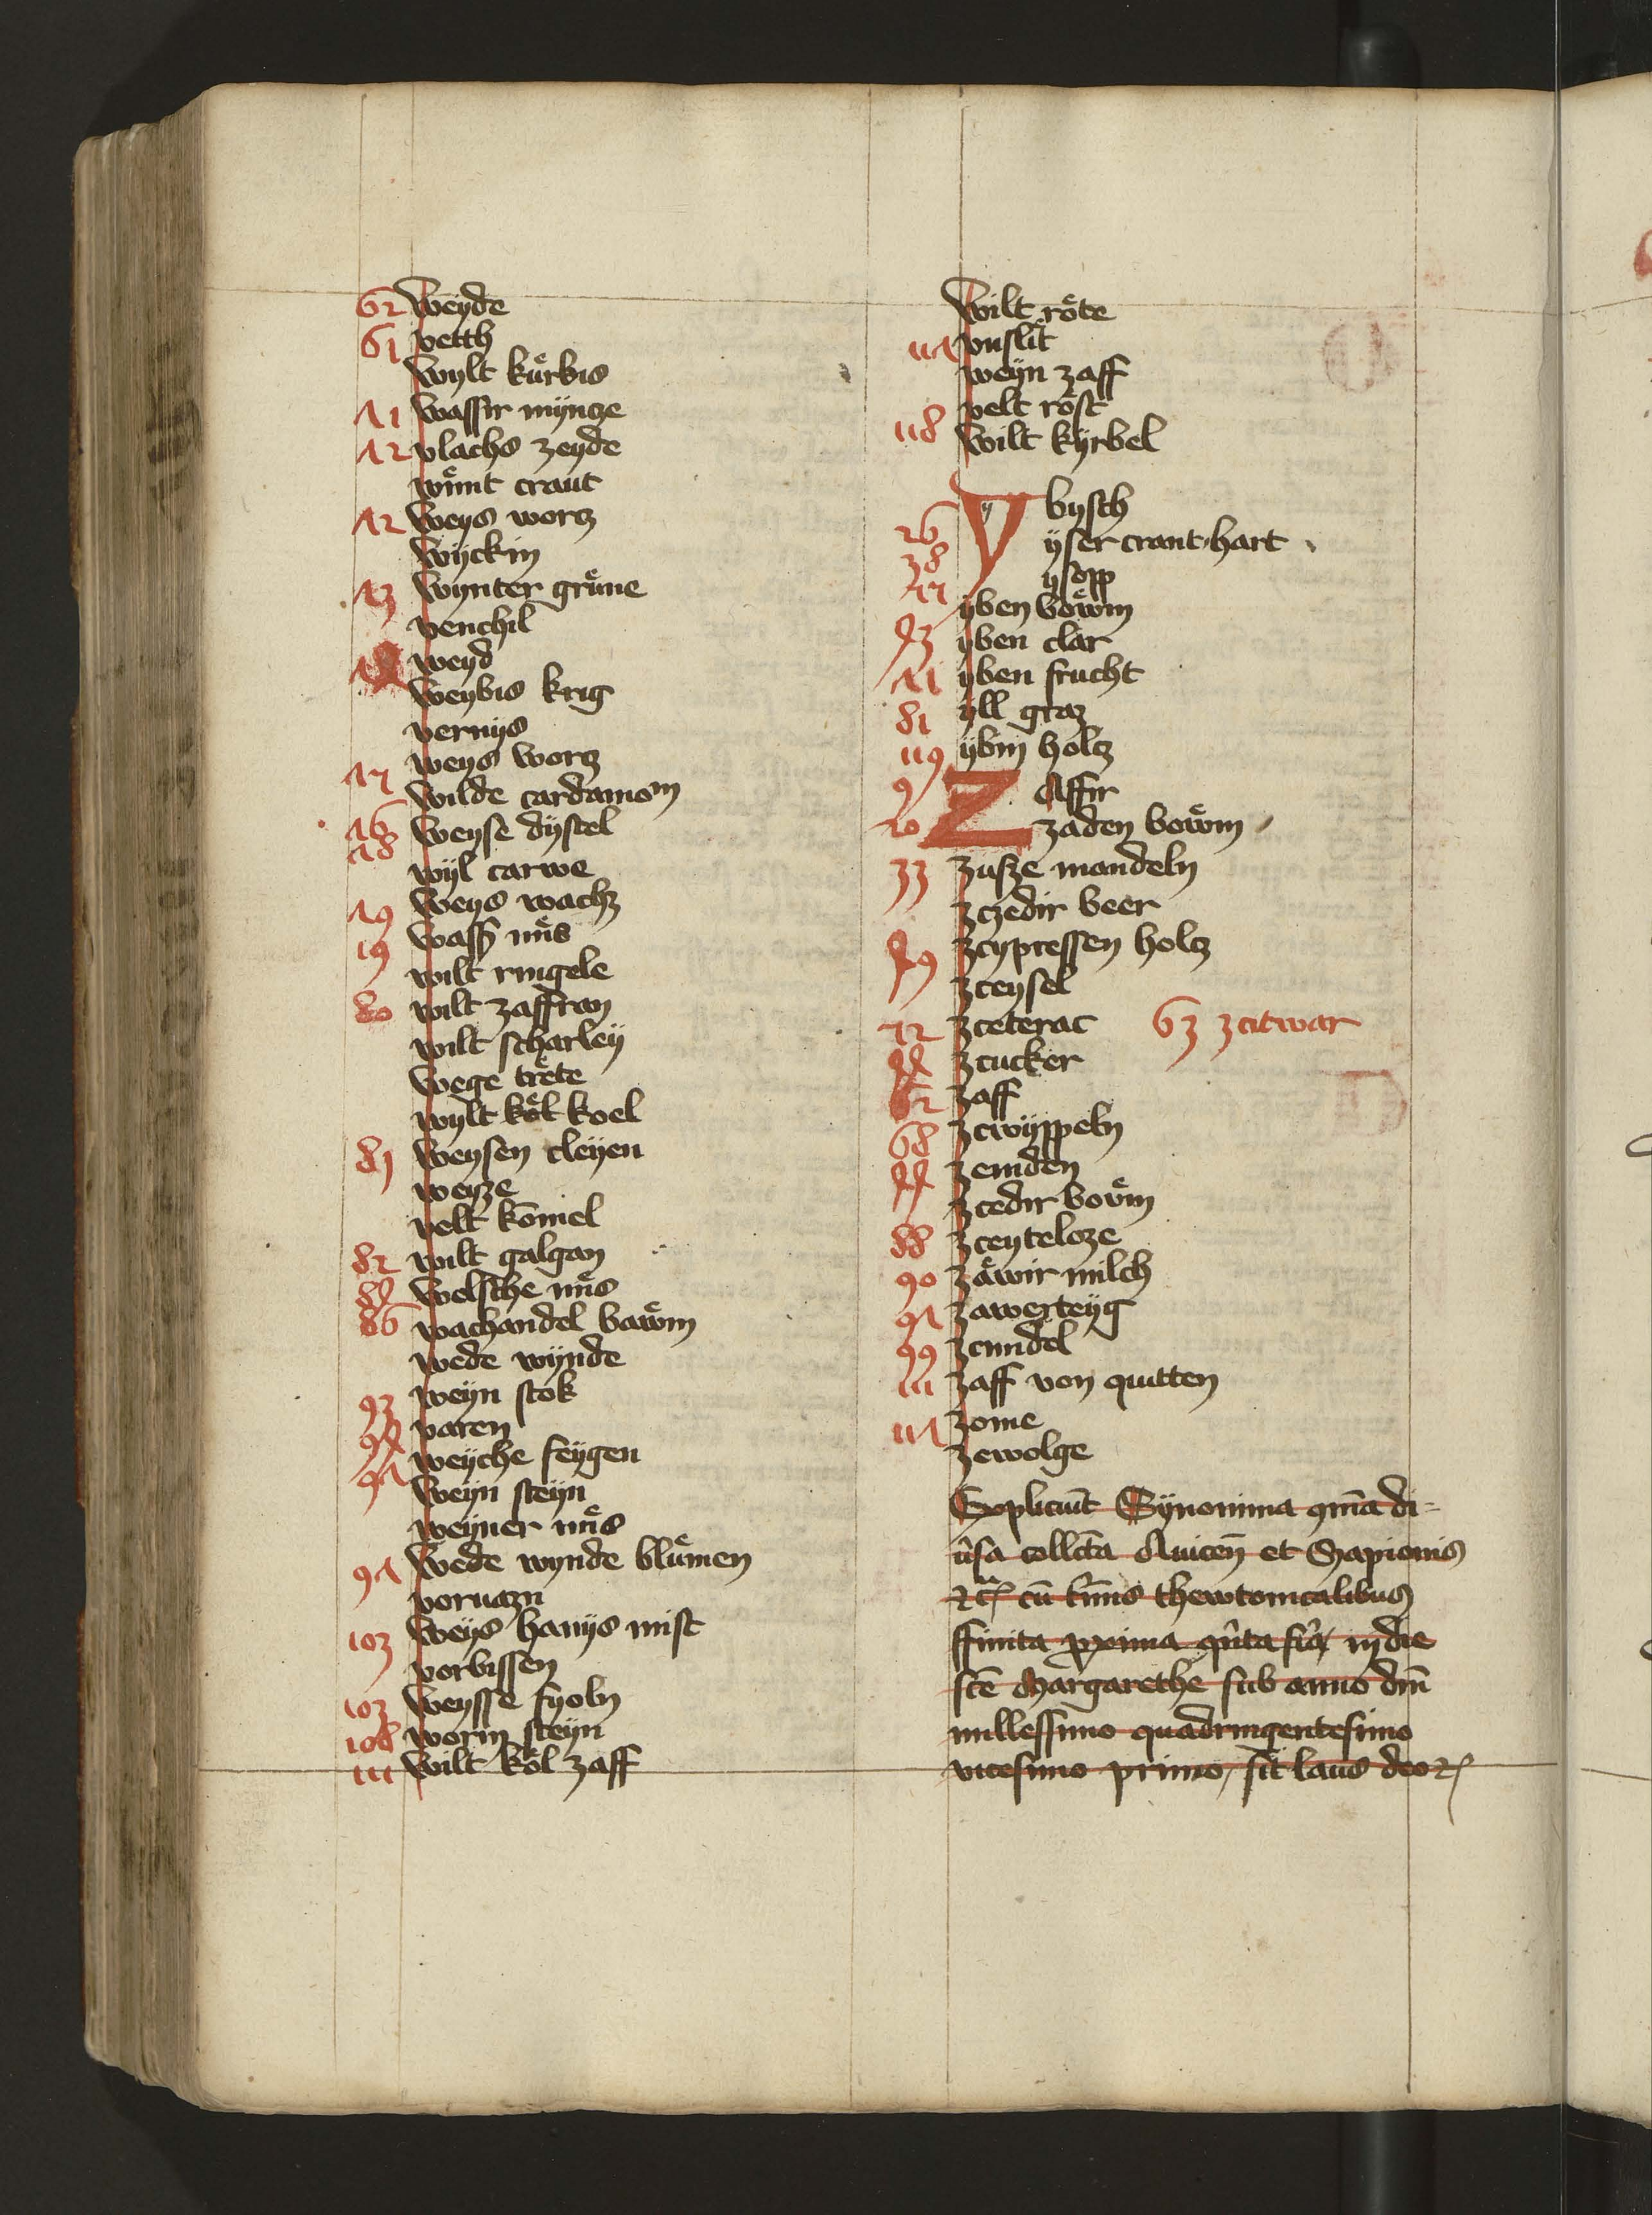 62 weyde
61 vetth
wylt kůrbis
71 wassir myncze
72 vlachs zeyde
wůnt craut
72 weys worcz
wyckin
73 wynter grůne
venchil
weyd
weybis krig
vernys
weys worcz
wilde cardamom
76 weyse dystel
78 wyl carwe
79 weys wachz
19 wass̄ nůs
wilt ringele
80 wilt zaffran
wilt scharley
wege trěte
wylt kǒl koel
81 weysen cleyen
weyze
velt kōmel
82 wilt galgan
84 welsche nůs
86 wachandel bawm
wede wynde
weyn stok
93 varen
94 weyche feygen
97 weyn steyn
weyner nůs
wede wynde blůmen
97 vorwazn
103 weys hanys mist
vorbissen
103 weysse fyoln
108 worm steyn
111 wilt kǒl zaff
wilt rǒte
117 vnslit
weyn zaff
118 velt rǒst
wilt kyrbel
26 Ybysch
38 yser craut hart
ysopp
yben bowm
43 yben clar
71 yben frucht
81 yll graz
119 ybin holcz
9 ZAffir
20 zaden bowm
33 zusze mandeln
zczedir beer
49 zcypressen holcz
zceysel
zceterac 63 zcitwar
44 zcucker
62 zaff
68 zcwyppeln
zemden
zcedir bovm
88 zceyteloze
90 zawir milch
97 zawerteyg
99 zcindel
111 zaff von quitten
117 zome
zewolge
Expliciūt Synonima qm̄a di-
ūsa collcta Auicen̄ et Serapionis
etc cū tmīs thewtonicalibus
ffinita proxima qnta fia in die
scē Margarethe sub anno dm̄
millessimo quadringentesimo
vicesimo primo, sit laus deo etc